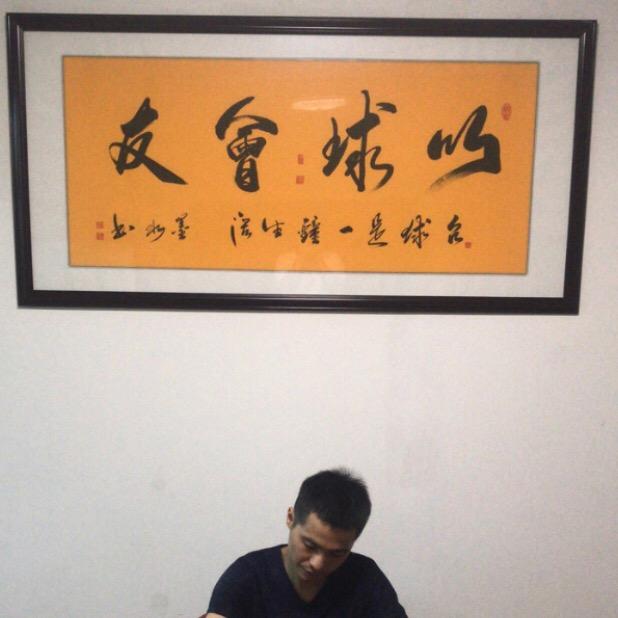 以球會友
台球是一種生活 墨 书